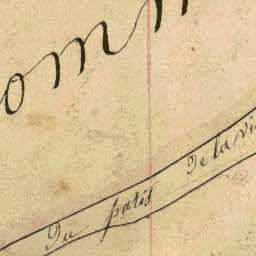 omm
Du patis De la vi